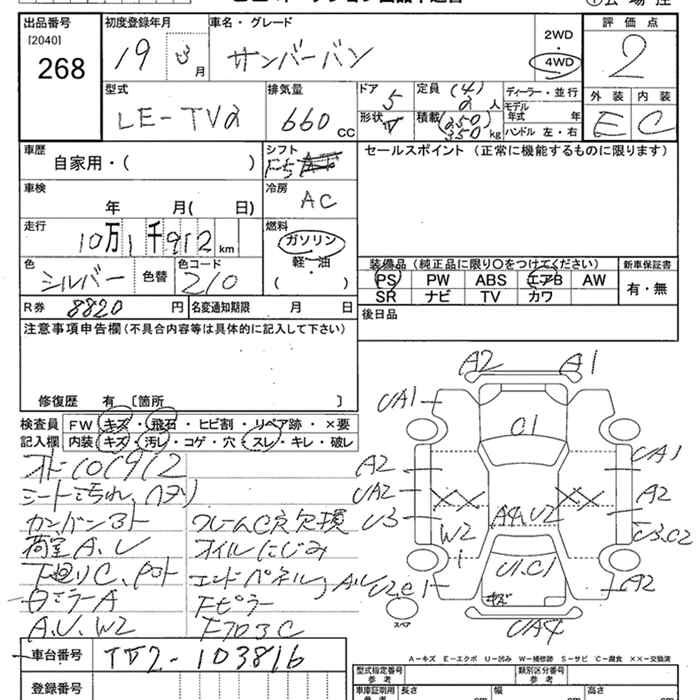 出品番号
[2040]
268
初度登録年月
19
3
月
車名・グレード
サンバーバン
2WD
4WD
評価点
2
型式
LE-TV2
排気量
660 cc
ドア
5
定員 (4)
2 人
形状
積載 (250)
350 kg
ディーラー・並行
モデル
年式 年
ハンドル 左・右
外装 内装
E C
車歴
自家用・( )
シフト
F5
セールスポイント (正常に機能するものに限ります)
車検
年 月( 日)
冷房
AC
走行
10万1千912 km
燃料
ガソリン
軽・油
( )
色
シルバー
色替
色コード
210
装備品 (純正品に限り○をつけてください)
PS PW ABS エアB AW
SR ナビ TV カワ
新車保証書
有・無
R券 8820 円
名変通知期限 月 日
後日品
注意事項申告欄 (不具合内容等は具体的に記入して下さい)
修復歴 有 [箇所 ]
検査員
記入欄
FW キズ・飛石・ヒビ割・リペア跡・×要
内装 キズ・汚レ・コゲ・穴・スレ・キレ・破レ
シート汚れ
荷室A、U
オイルにじみ
エンドパネル
Fピラー
A、U、W2
A2
A1
UA1
C1
A2
UA1
UA2
A2
U3
××
××
U3.C2
W2
A4.U2
U1.C1
U2C1
A2
キズ
スペア
UA4
A-キズ E-エクボ U-凹み W-補修跡 S-サビ C-腐食 ××-交換済
車台番号
TV2-103816
登録番号
型式指定番号
参考
類別区分番号
参考
車庫証明用
参考
長さ
cm
幅
cm
高さ
cm